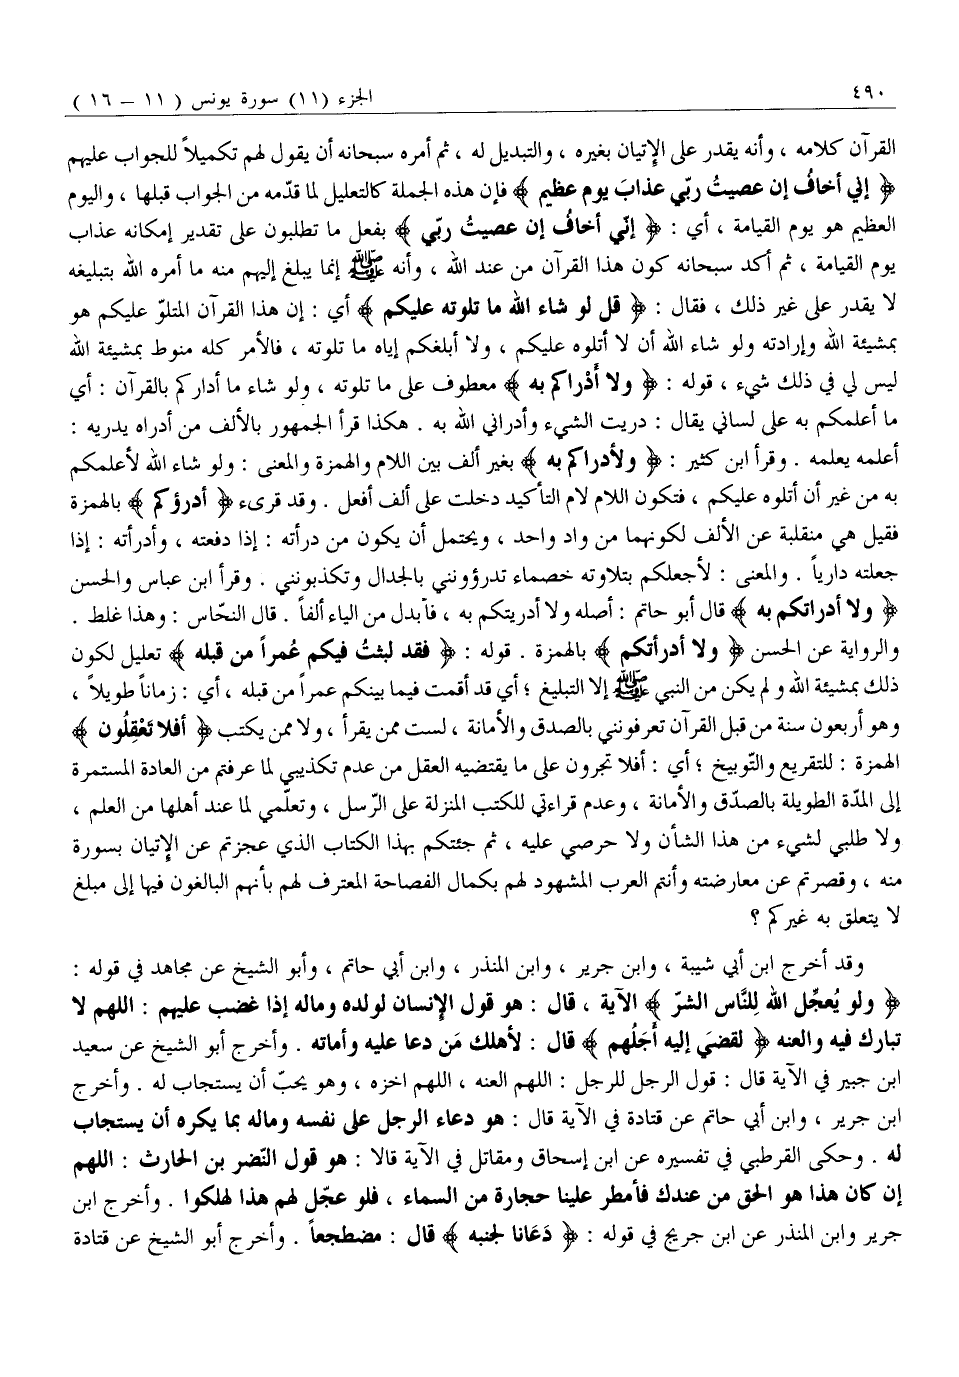 ٤٩٠
الجزء (١١) سورة يونس ( ١١ – ١٦ )
القرآن كلامه ، وأنه يقدر على الإتيان بغيره ، والتبديل له ، ثم أمره سبحانه أن يقول لهم تكميلاً للجواب عليهم
﴿ إني أخافُ إن عصيتُ ربّي عذابَ يوم عظيم ﴾ فإن هذه الجملة كالتعليل لما قدّمه من الجواب قبلها ، واليوم
العظيم هو يوم القيامة ، أي : ﴿ إنّي أخافُ إن عصيتُ ربّي ﴾ بفعل ما تطلبون على تقدير إمكانه عذاب
يوم القيامة ، ثم أكد سبحانه كون هذا القرآن من عند الله ، وأنه ﷺ إنما يبلغ إليهم منه ما أمره الله بتبليغه
لا يقدر على غير ذلك ، فقال : ﴿ قل لو شاء الله ما تلوته عليكم ﴾ أي : إن هذا القرآن المتلوّ عليكم هو
بمشيئة الله وإرادته ولو شاء الله أن لا أتلوه عليكم ، ولا أبلغكم إياه ما تلوته ، فالأمر كله منوط بمشيئة الله
ليس لي في ذلك شيء ، قوله : ﴿ ولا أَدْراكم به ﴾ معطوف على ما تلوته ، ولو شاء ما أداركم بالقرآن : أي
ما أعلمكم به على لساني يقال : دريت الشيء وأدراني الله به . هكذا قرأ الجمهور بالألف من أدراه يدريه :
أعلمه يعلمه . وقرأ ابن كثير : ﴿ ولأدراكم به ﴾ بغير ألف بين اللام والهمزة والمعنى : ولو شاء الله لأعلمكم
به من غير أن أتلوه عليكم ، فتكون اللام لام التأكيد دخلت على ألف أفعل . وقد قرىء ﴿ أدرؤكم ﴾ بالهمزة
فقيل هي منقلبة عن الألف لكونهما من واد واحد ، ويحتمل أن يكون من درأته : إذا دفعته ، وأدرأته : إذا
جعلته دارياً . والمعنى : لأجعلكم بتلاوته خصماء تدرؤونني بالجدال وتكذبونني . وقرأ ابن عباس والحسن
﴿ ولا أدراتكم به ﴾ قال أبو حاتم : أصله ولا أدريتكم به ، فأبدل من الياء ألفاً . قال النحّاس : وهذا غلط .
والرواية عن الحسن ﴿ ولا أدرأتكم ﴾ بالهمزة . قوله : ﴿ فقد لبثتُ فيكم عُمراً من قبله ﴾ تعليل لكون
ذلك بمشيئة الله و لم يكن من النبي ﷺ إلا التبليغ ؛ أي قد أقمت فيما بينكم عمراً من قبله ، أي : زماناً طويلاً ،
وهو أربعون سنة من قبل القرآن تعرفونني بالصدق والأمانة ، لست ممن يقرأ ، ولا ممن يكتب ﴿ أفلا تَعْقِلُون ﴾
الهمزة : للتقريع والتّوبيخ ؛ أي : أفلا تجرون على ما يقتضيه العقل من عدم تكذيبي لما عرفتم من العادة المستمرة
إلى المدّة الطويلة بالصدّق والأمانة ، وعدم قراءتي للكتب المنزلة على الرّسل ، وتعلّمي لما عند أهلها من العلم ،
ولا طلبي لشيء من هذا الشأن ولا حرصي عليه ، ثم جئتكم بهذا الكتاب الذي عجزتم عن الإتيان بسورة
منه ، وقصرتم عن معارضته وأنتم العرب المشهود لهم بكمال الفصاحة المعترف لهم بأنهم البالغون فيها إلى مبلغ
لا يتعلق به غيركم ؟
وقد أخرج ابن أبي شيبة ، وابن جرير ، وابن المنذر ، وابن أبي حاتم ، وأبو الشيخ عن مجاهد في قوله :
﴿ ولو يُعجِّل الله لِلنَّاس الشرّ ﴾ الآية ، قال : هو قول الإنسان لولده وماله إذا غضب عليهم : اللهم لا
تبارك فيه والعنه ﴿ لقضيَ إليه أَجَلُهم ﴾ قال : لأهلك مَن دعا عليه وأماته . وأخرج أبو الشيخ عن سعيد
ابن جبير في الآية قال : قول الرجل للرجل : اللهم العنه ، اللهم اخزه ، وهو يحبّ أن يستجاب له . وأخرج
ابن جرير ، وابن أبي حاتم عن قتادة في الآية قال : هو دعاء الرجل على نفسه وماله بما يكره أن يستجاب
له . وحكى القرطبي في تفسيره عن ابن إسحاق ومقاتل في الآية قالا : هو قول النّضر بن الحارث : اللهم
إن كان هذا هو الحق من عندك فأمطر علينا حجارة من السماء ، فلو عجّل لهم هذا لهلكوا . وأخرج ابن
جرير وابن المنذر عن ابن جريج في قوله : ﴿ دَعَانا لجنبه ﴾ قال : مضطجعاً . وأخرج أبو الشيخ عن قتادة